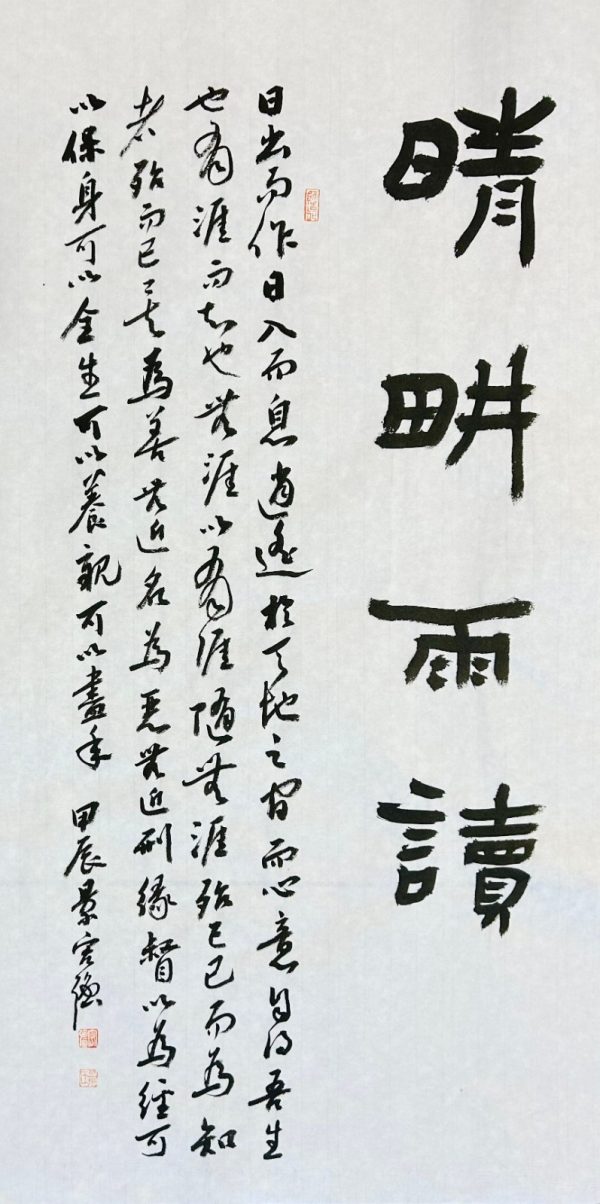 晴畊雨讀
日出而作日入而息逍遙於天地之間而心意自得吾生
也有涯而知也無涯以有涯隨無涯殆已已而為知
者殆而已矣為善無近名為惡無近刑緣督以為經可
以保身可以全生可以養親可以盡年 甲辰